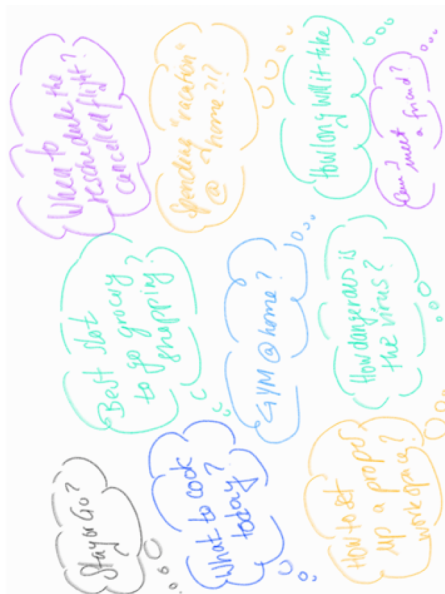 Stay or Go?
Best slot
to go grocery
shopping?
When to
reschedule the
cancelled flight?
What to cook
today?
GYM @home?
Spending "vacation"
@ home?!?
How to set
up a proper
workspace?
How dangerous is
the virus?
How long will it take
Can I meet
a friend?